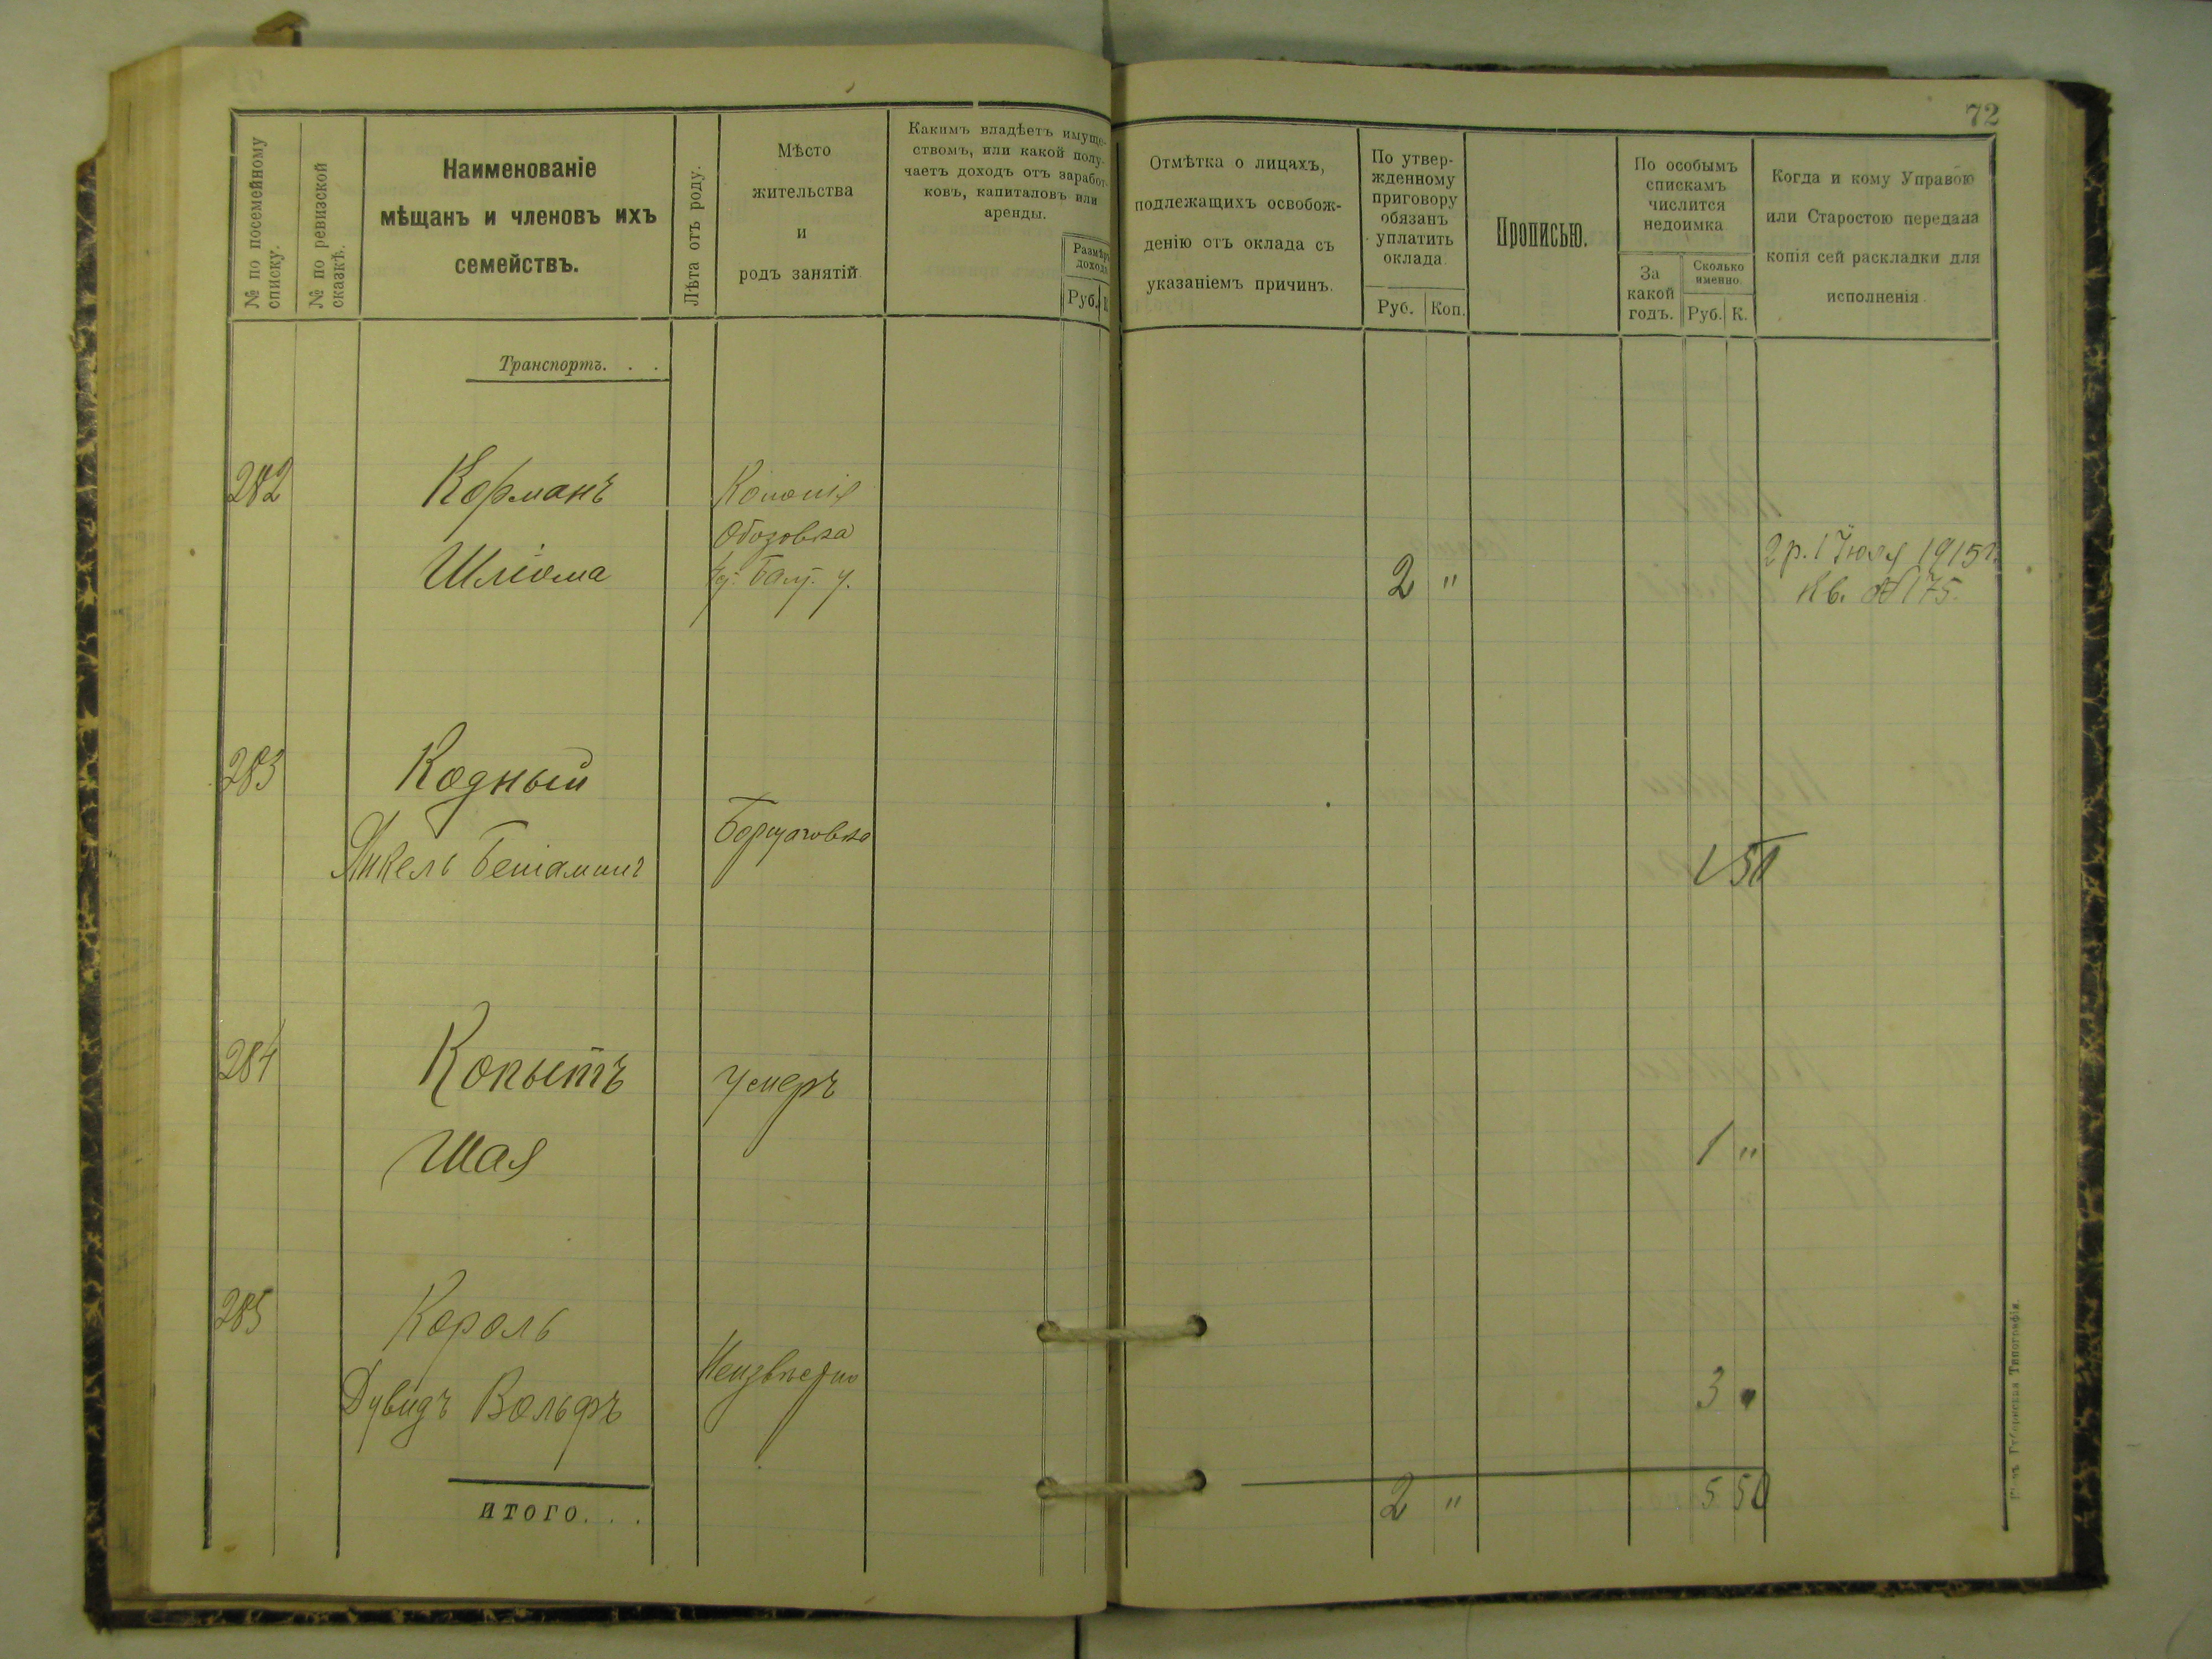 72
№ по посемейному
списку.
№ по ревизской
сказкѣ.
Наименованіе
мѣщанъ и членовъ ихъ
семействъ.
Лѣта отъ роду.
Мѣсто
жительства
и
родъ занятій
Какимъ владѣетъ имуще-
ствомъ, или какой полу-
чаетъ доходъ отъ заработ-
ковъ, капиталовъ или
аренды.
Размѣръ
дохода
Руб.
К
Отмѣтка о лицахъ,
подлежащихъ освобож-
денію отъ оклада съ
указаніемъ причинъ.
По утвер-
жденному
приговору
обязанъ
уплатить
оклада
Руб. Коп.
Прописью.
По особымъ
спискамъ
числится
недоимка
За
какой
годъ.
Сколько
именно.
Руб. К.
Когда и кому Управою
или Старостою передана
копія сей раскладки для
исполненія
Транспортъ. . .
282
Корманъ
Шліома
Колонія
Обозовка
Балт. у.
2 "
2 р. 1 Іюля 1915 г.
Кв. № 175.
283
Кодный
Янкель Беніаминъ
Борщаговка
1 50
284
Копытъ
Шая
Умеръ
1 "
285
Король
Дувидъ Вольфъ
Неизвѣстно
3 "
ИТОГО. . .
2 "
5 50
Губернская Типографія.